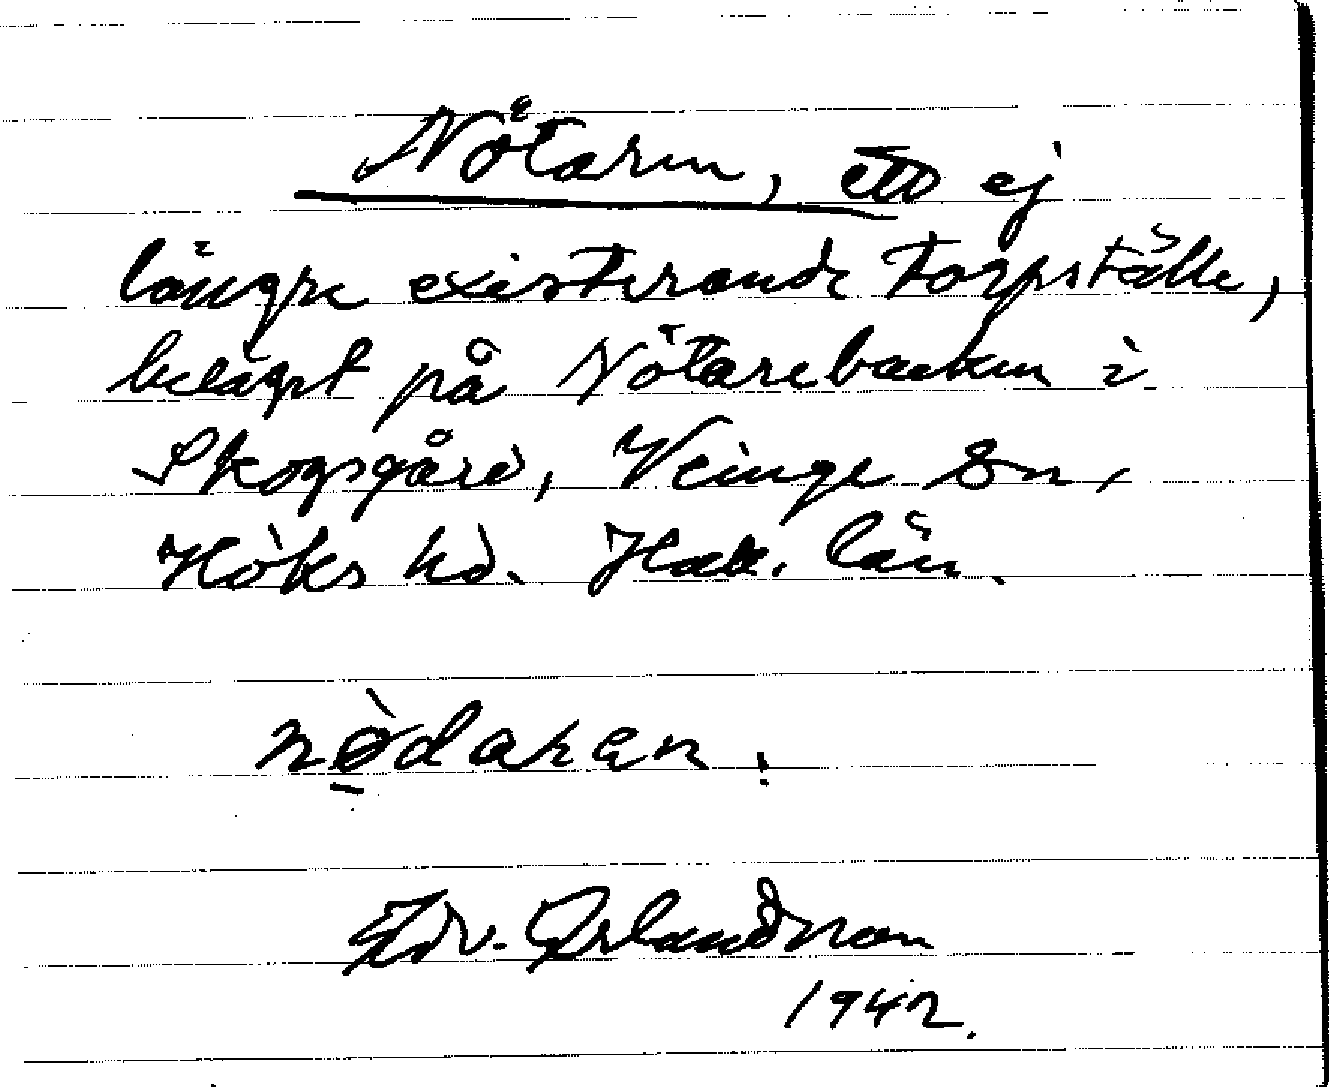 Nötaren, ett ej
längre existerande torpställe,
beläget på Nötarebacken i
Skogsgård, Veinge sn,
Höks hd. Hall. län.
nödaren.
Edv. Erlandsson
1942.